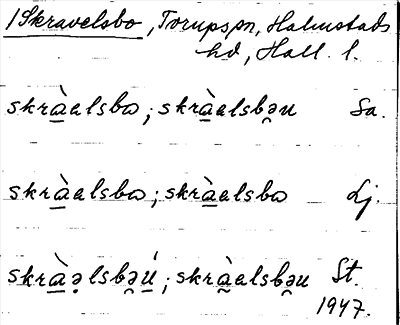 /Skravelsbo, Torups sn, Halmstads
hd, Hall. l.
skràaelsbω; skràaelsbə̯u Sa.
skràaelsbω; skràaelsbω Lj.
skràəlsbə̯ú; skràaelsbə̯u St.
1947.